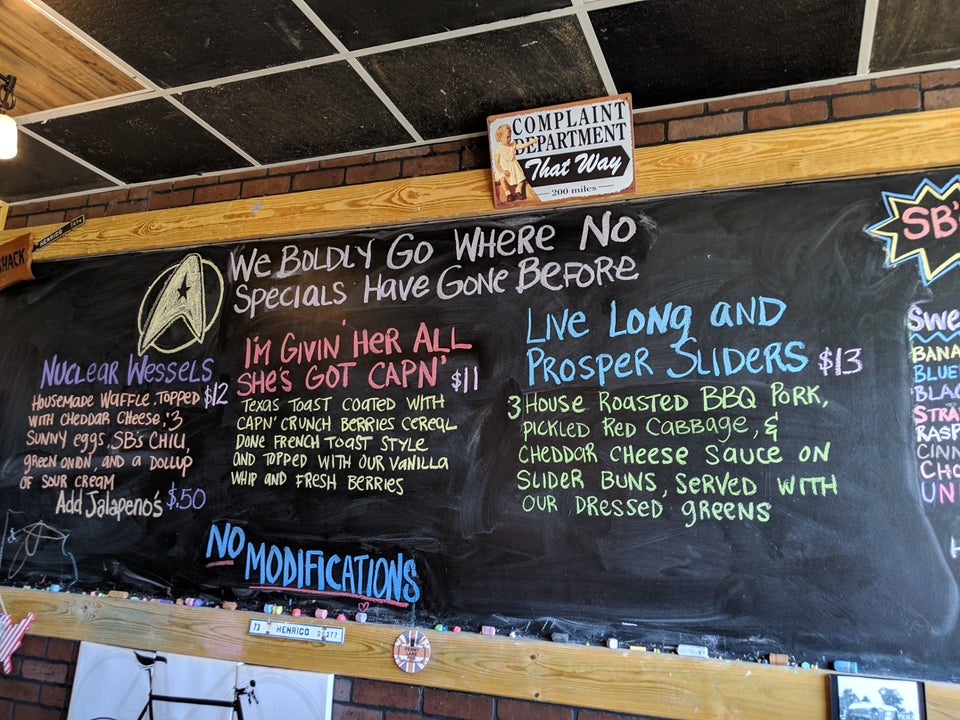 COMPLAINT
DEPARTMENT
That Way
200 miles
HENRICO
SHACK
WE BOLDLY GO WHERE NO
SPECIALS HAVE GONE BEFORE
NUCLEAR WESSELS
HOUSEMADE WAFFLE TOPPED $12
WITH CHEDDAR CHEESE, 3
SUNNY EGGS, SB'S CHILI,
GREEN ONION, AND A DOLLUP
OF SOUR CREAM
Add Jalapeno's $.50
I'M GIVIN' HER ALL
SHE'S GOT CAPN' $11
TEXAS TOAST COATED WITH
CAPN' CRUNCH BERRIES CEREAL
DONE FRENCH TOAST STYLE
AND TOPPED WITH OUR VANILLA
WHIP AND FRESH BERRIES
LIVE LONG AND
PROSPER SLIDERS $13
3 HOUSE ROASTED BBQ PORK,
PICKLED RED CABBAGE, &
CHEDDAR CHEESE SAUCE ON
SLIDER BUNS, SERVED WITH
OUR DRESSED GREENS
NO MODIFICATIONS
SB'S
SWE
BANA
BLUE
BLAC
STRA
RASP
CINN
CHO
UN
73 HENRICO 20277
PENNY LANE